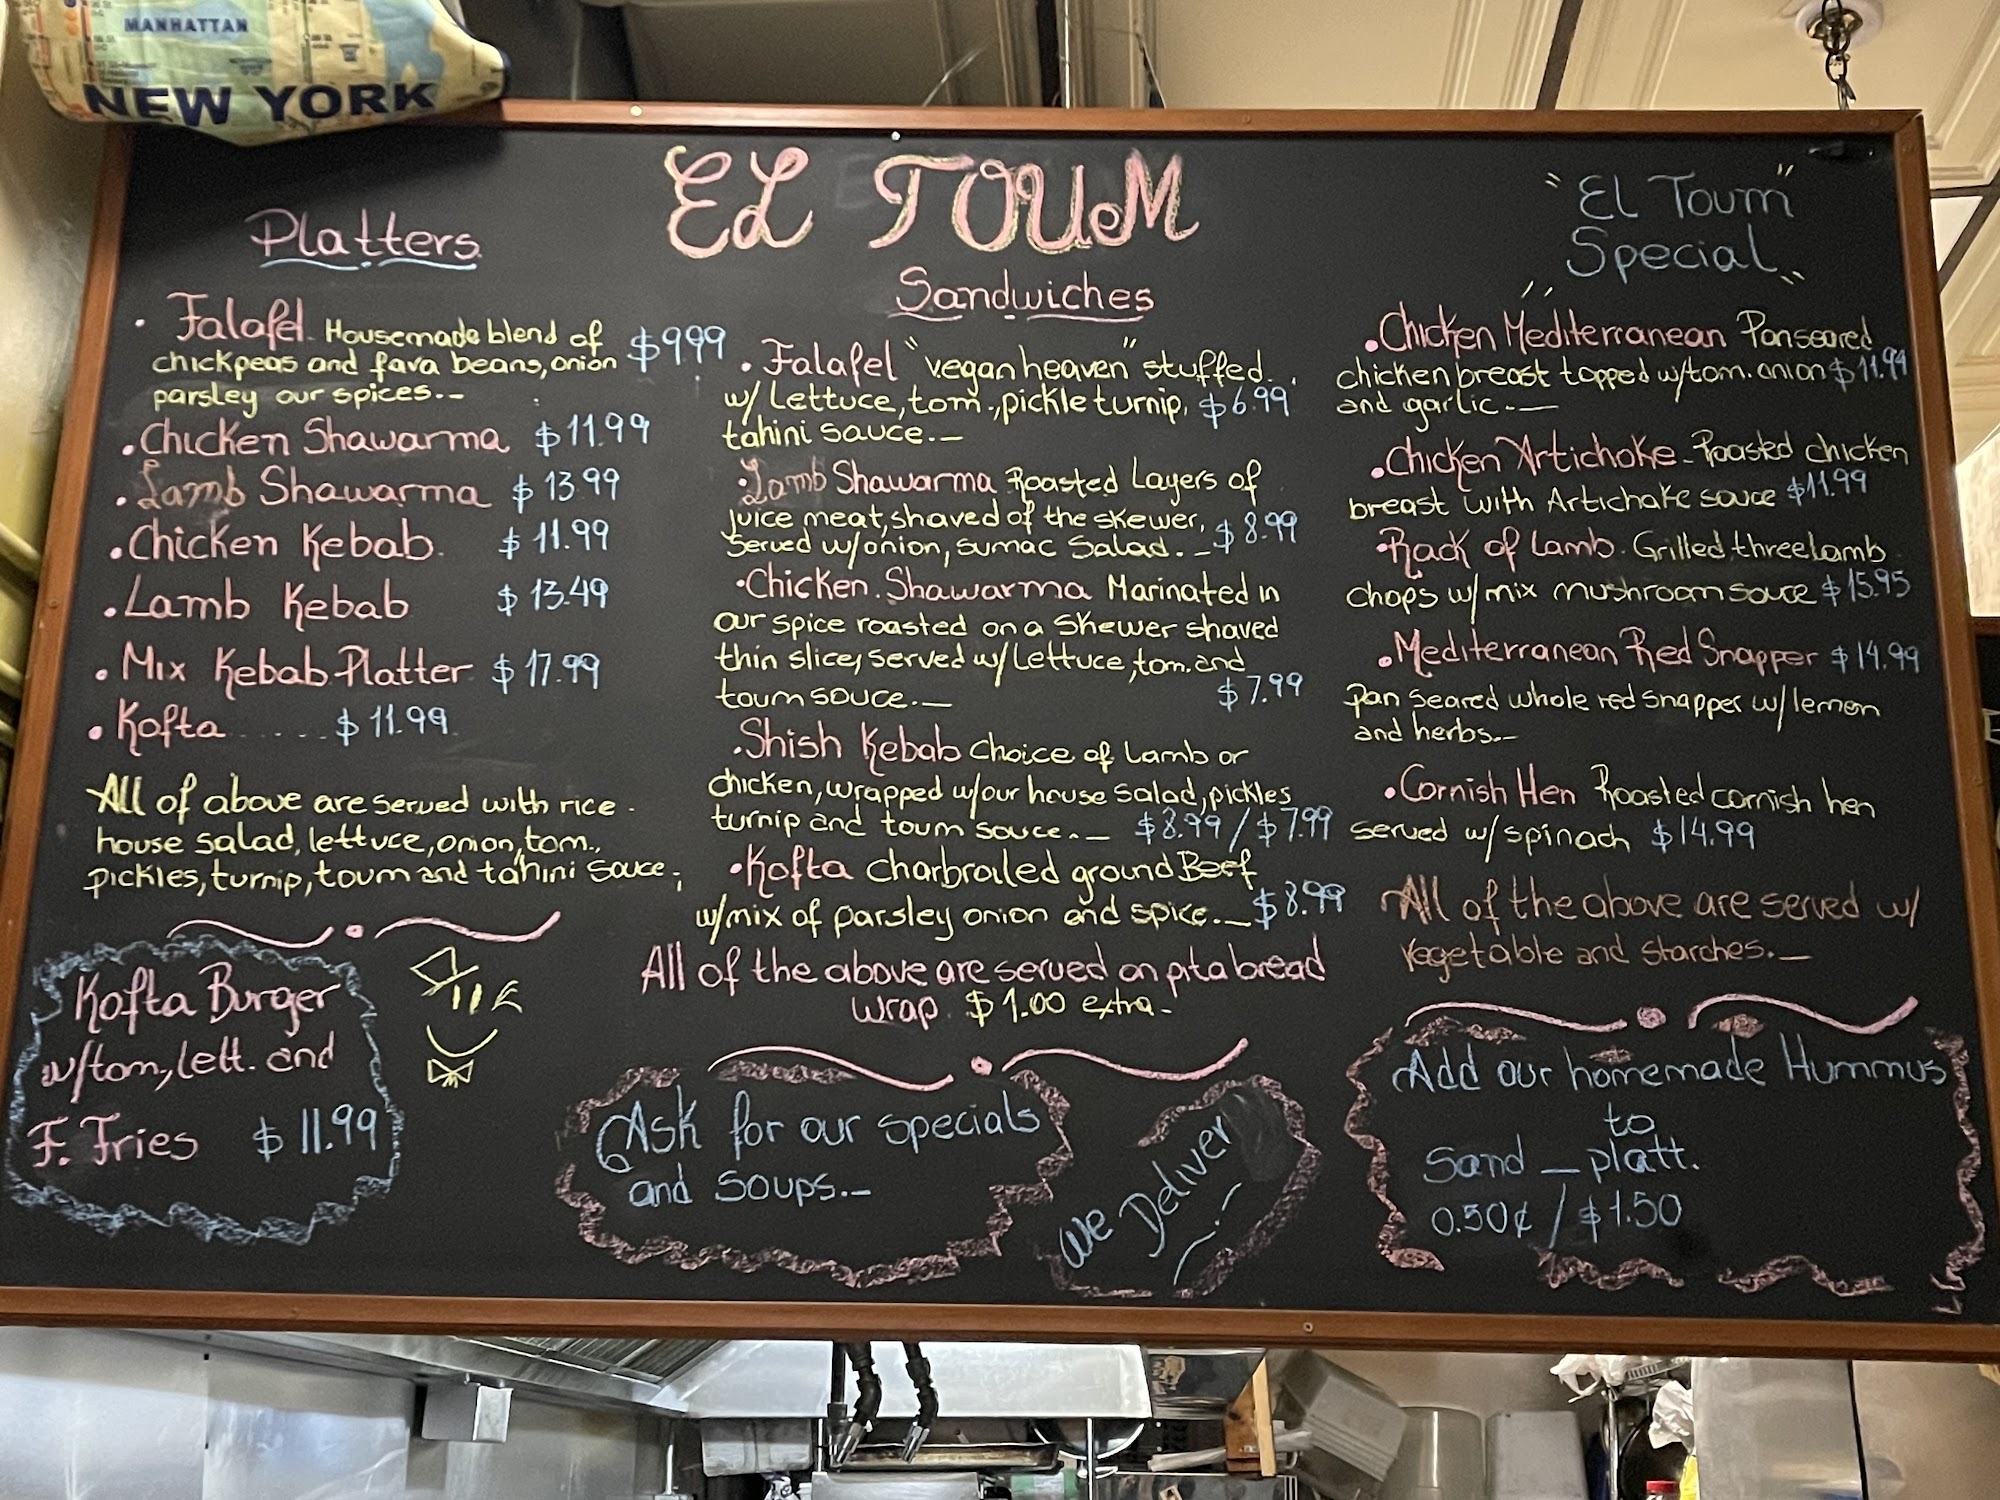 MANHATTAN
NEW YORK
EL TOUM
Platters
• Falafel. Housemade blend of
chickpeas and fava beans, onion $9.99
parsley our spices.--
• Chicken Shawarma $11.99
• Lamb Shawarma $13.99
• Chicken Kebab. $11.99
• Lamb Kebab $13.49
• Mix Kebab Platter $17.99
• Kofta ...... $11.99
All of above are served with rice.
house salad, lettuce, onion, tom.,
pickles, turnip, toum and tahini sauce.,
Kofta Burger
w/tom, lett. and
F. Fries $11.99
Sandwiches
• Falafel "vegan heaven" stuffed
w/ lettuce, tom., pickle turnip, $6.99
tahini sauce.—
• Lamb Shawarma Roasted Layers of
juice meat, shaved of the skewer,
served w/onion, sumac salad.- $8.99
• Chicken. Shawarma Marinated in
our spice roasted on a skewer shaved
thin slice, served w/lettuce, tom. and
toum souce.— $7.99
• Shish Kebab choice of lamb or
chicken, wrapped w/our house salad, pickles
turnip and toum souce.— $8.99 / $7.99
• Kofta charbroiled ground Beef
w/mix of parsley onion and spice.— $8.99
All of the above are served on pita bread
wrap. $1.00 extra-
Ask for our specials
and soups.—
We Deliver
"El Toum"
Special
• Chicken Mediterranean Panseared
chicken breast topped w/tom. onion $11.99
and garlic.—
• Chicken Artichoke- Roasted chicken
breast with Artichake sauce $11.99
• Rack of Lamb. Grilled three lamb
chops w/mix mushroom souce $15.95
• Mediterranean Red Snapper $14.99
pan seared whole red snapper w/lemon
and herbs.-
• Cornish Hen Roasted cornish hen
served w/spinach $14.99
All of the above are served w/
vegetable and starches.—
Add our homemade Hummus
to
Sand — platt.
0.50¢ / $1.50